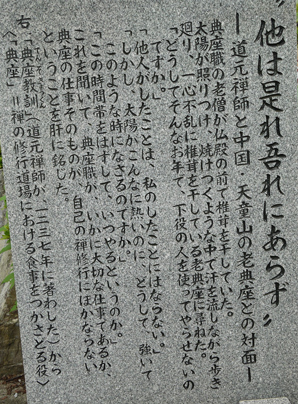 〝他は是れ吾れにあらず〟
―道元禅師と中国・天童山の老典座との対面―
典座職の老僧が仏殿の前で椎茸を干していた。
太陽が照りつけ、焼けつくような中で汗を流しながら歩き
廻り、一心不乱に椎茸を干している老典座に尋ねた。
「どうしてそんなお年で、下役の人を使ってやらせないの
ですか。」
「他人がしたことは、私のしたことにはならない。」
「しかし、太陽がこんなに熱いのに、どうして、強いて
このような時になさるのですか。」
「この時間帯をはずして、いつやるというのか。」
これを聞いて、典座職が、いかに大切な仕事であるか、
典座の仕事そのものが、自己の禅修行にほかならない
ということを肝に銘じた。
右、「典座教訓」(道元禅師が、一二三七年に著わした)から
〈典座〉=禅の修行道場における食事をつかさどる役〉